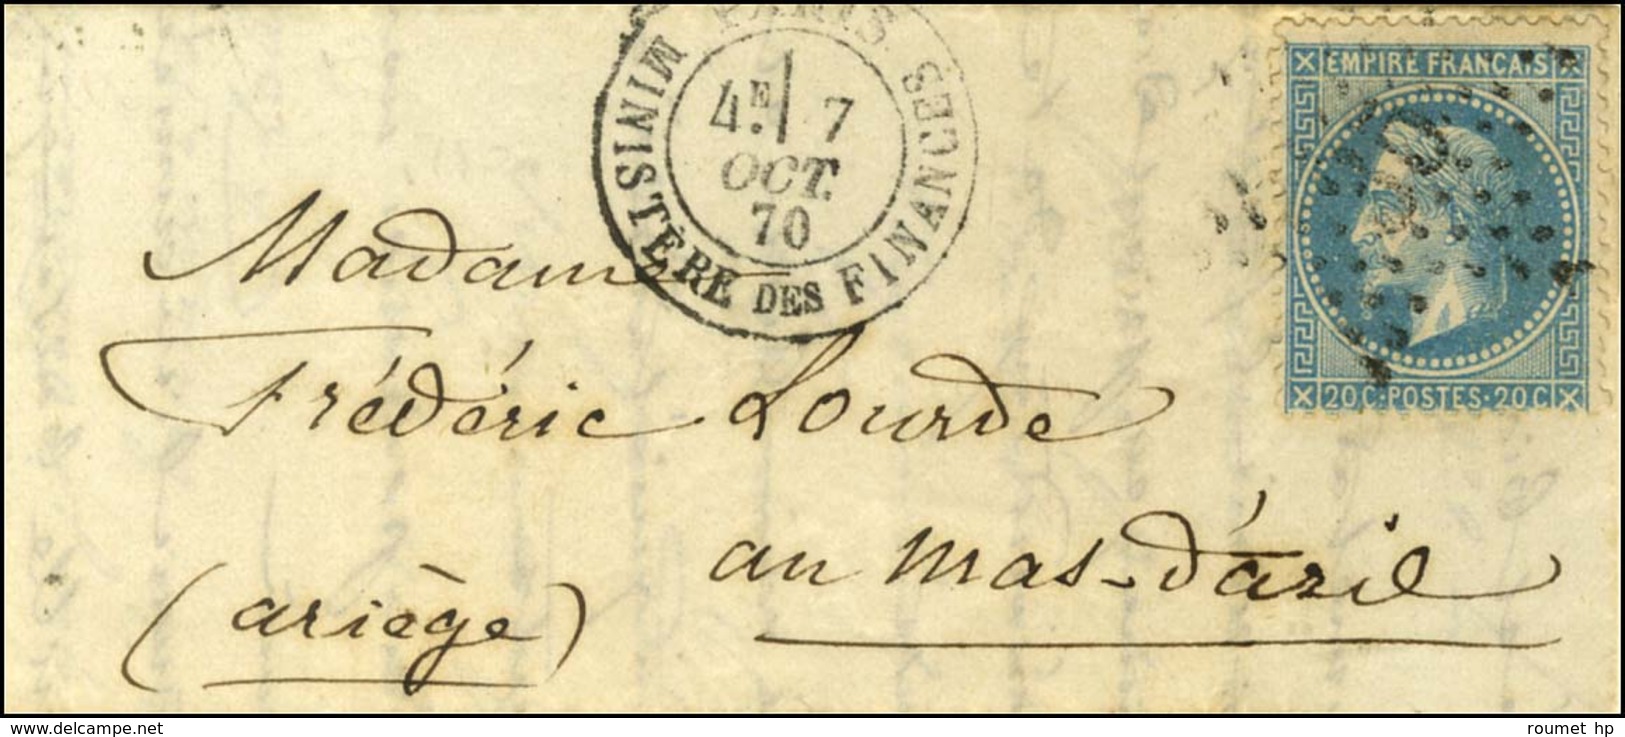 PARIS.
MINISTÈRE DES FINANCES
4E. 7
OCT.
70
EMPIRE FRANCAIS
20 C · POSTES · 20 C
Madame
Frédéric Lourde
au Mas-d'azil
(ariège)
www.delcampe.net
roumet hp